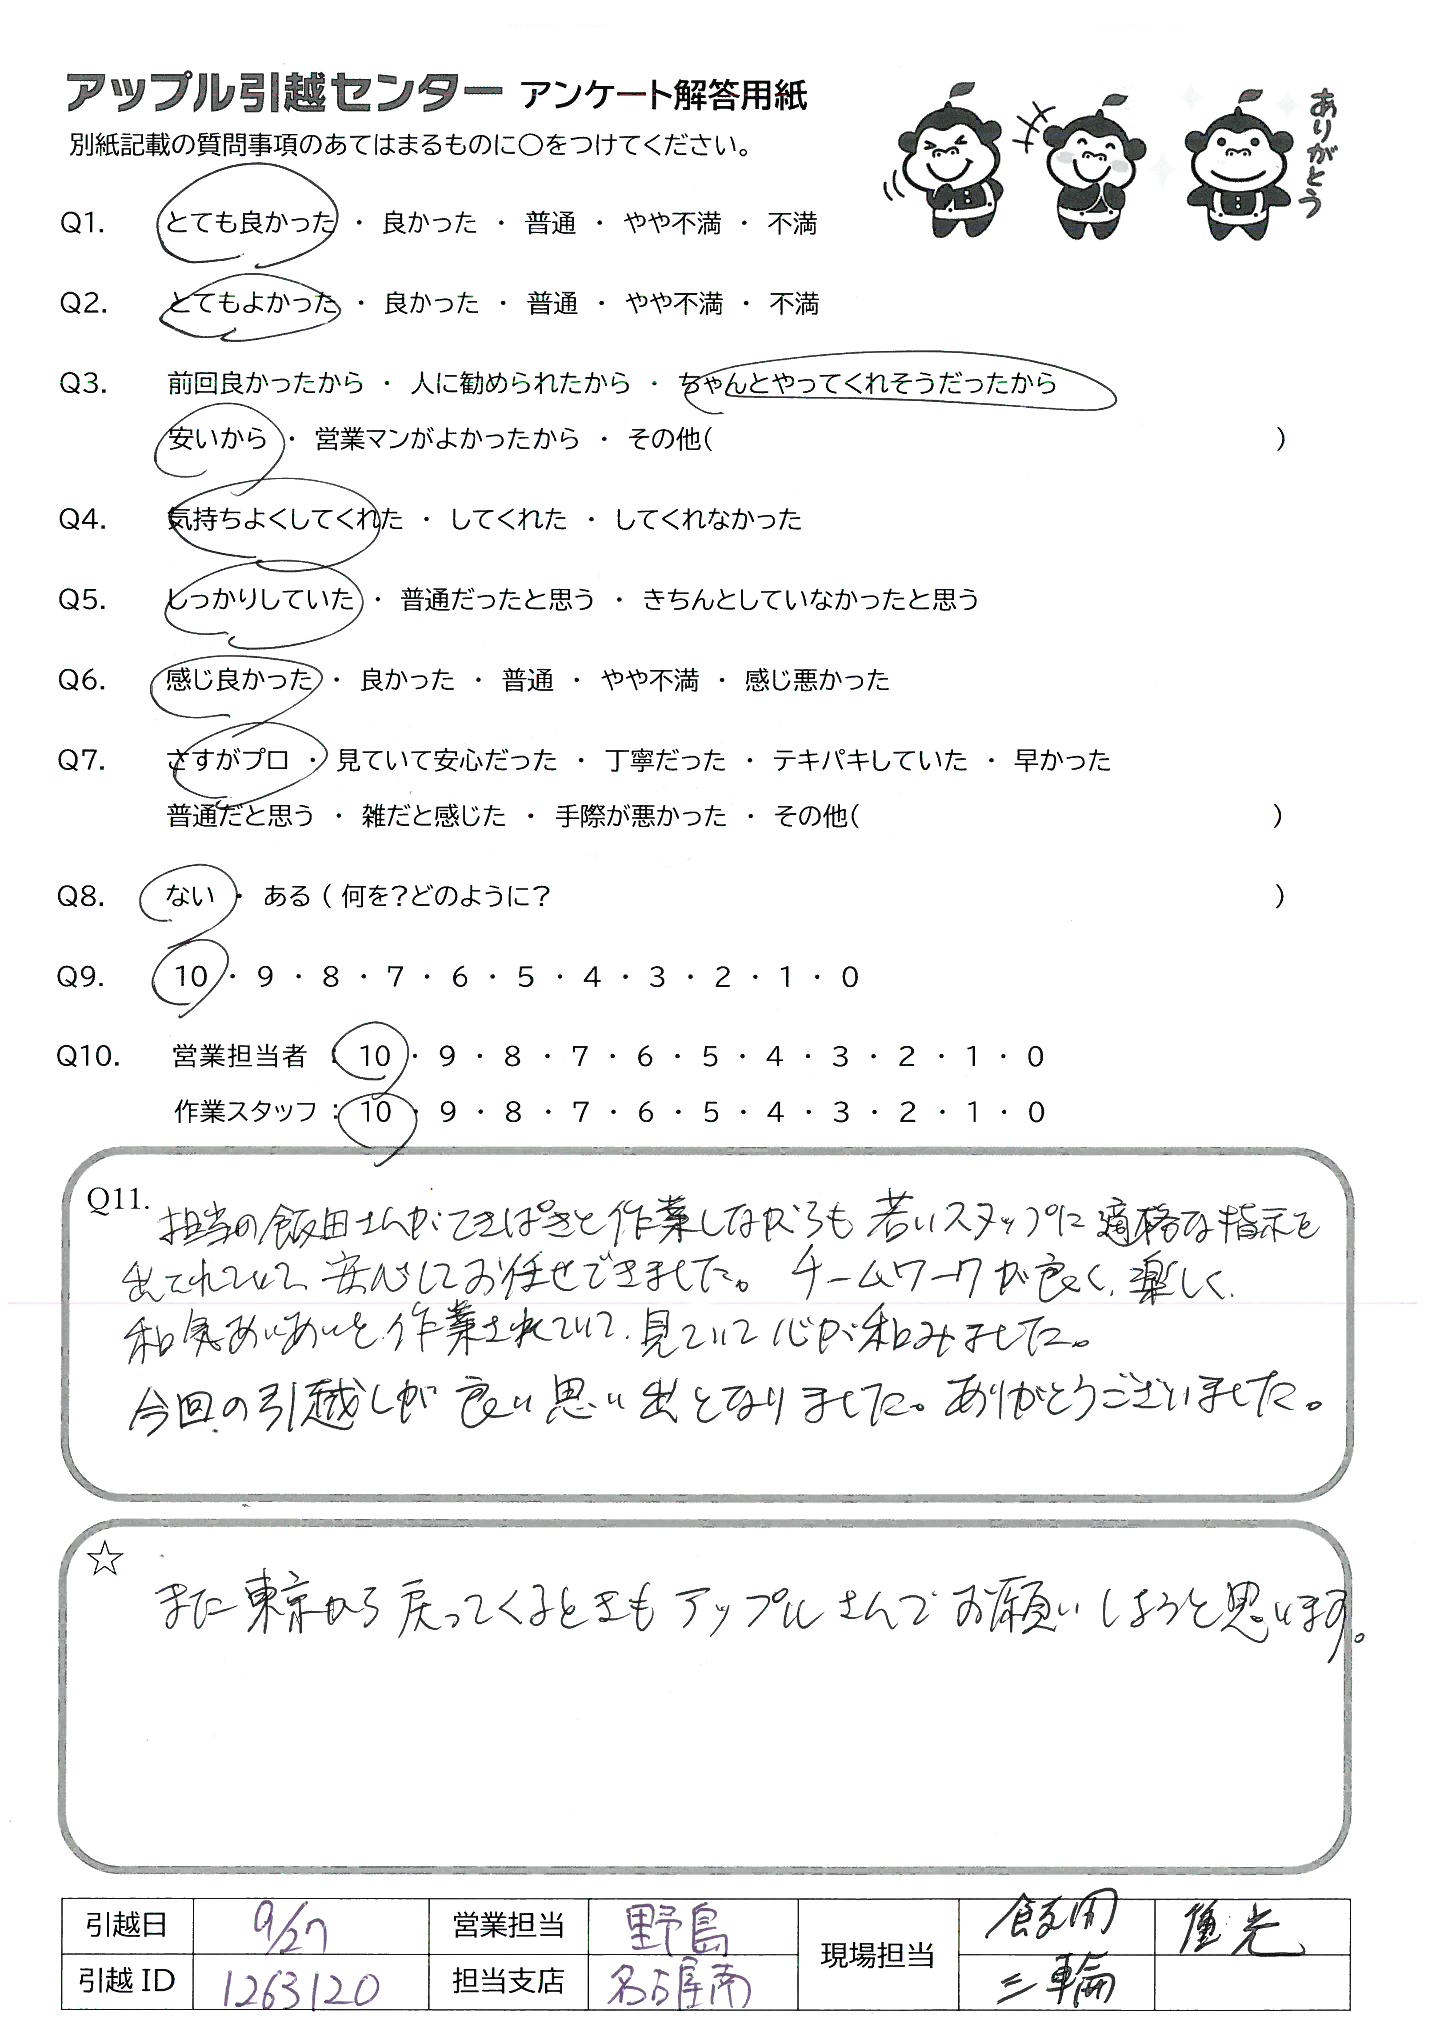 アップル引越センター アンケート解答用紙
ありがとう
別紙記載の質問事項のあてはまるものに〇をつけてください。
Q1. とても良かった ・ 良かった ・ 普通 ・ やや不満 ・ 不満
Q2. とてもよかった ・ 良かった ・ 普通 ・ やや不満 ・ 不満
Q3. 前回良かったから ・ 人に勧められたから ・ ちゃんとやってくれそうだったから
安いから ・ 営業マンがよかったから ・ その他( )
Q4. 気持ちよくしてくれた ・ してくれた ・ してくれなかった
Q5. しっかりしていた ・ 普通だったと思う ・ きちんとしていなかったと思う
Q6. 感じ良かった ・ 良かった ・ 普通 ・ やや不満 ・ 感じ悪かった
Q7. さすがプロ ・ 見ていて安心だった ・ 丁寧だった ・ テキパキしていた ・ 早かった
普通だと思う ・ 雑だと感じた ・ 手際が悪かった ・ その他( )
Q8. ない ・ ある ( 何を?どのように? )
Q9. 10 ・ 9 ・ 8 ・ 7 ・ 6 ・ 5 ・ 4 ・ 3 ・ 2 ・ 1 ・ 0
Q10. 営業担当者 : 10 ・ 9 ・ 8 ・ 7 ・ 6 ・ 5 ・ 4 ・ 3 ・ 2 ・ 1 ・ 0
作業スタッフ : 10 ・ 9 ・ 8 ・ 7 ・ 6 ・ 5 ・ 4 ・ 3 ・ 2 ・ 1 ・ 0
Q11. 担当の飯田さんがてきぱきと作業しながらも若いスタッフに適格な指示を
出てれていて、安心してお任せできました。チームワークが良く、楽しく、
和気あいあいと作業されていて、見ていて心が和みました。
今回の引越しが良い思い出となりました。ありがとうございました。
☆ また東京から戻ってくるときもアップルさんでお願いしようと思います。
引越日 9/27 営業担当 野島 現場担当 飯田
引越ID 1263120 担当支店 名古屋南 三輪